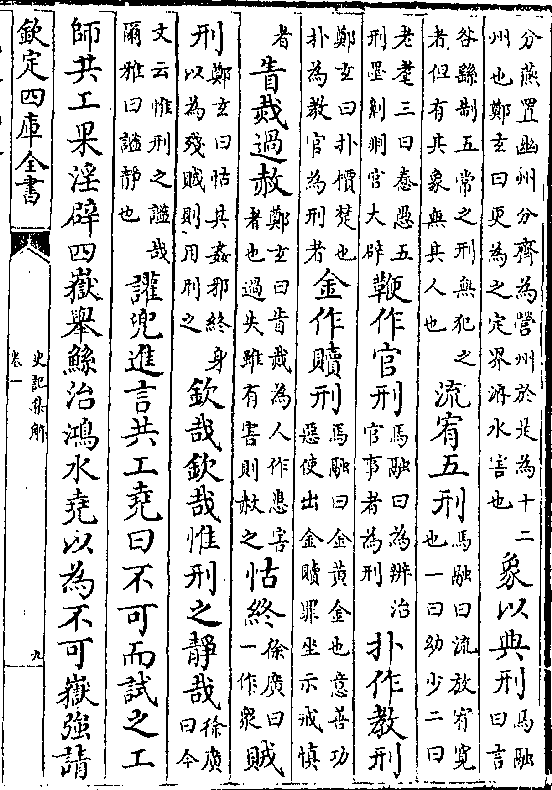 分燕置幽州分齊為營州於是為十二州也鄭玄曰更為之定界濬水害也象以典刑馬融曰言
咎繇制五常之刑無犯之者但有其象無其人也流宥五刑馬融曰流放宥寬也一曰幼少二曰
老耄三曰憃愚五刑墨劓剕宮大辟鞭作官刑馬融曰為辨治官事者為刑扑作教刑
鄭玄曰扑檟楚也扑為教官為刑者金作贖刑馬融曰金黃金也意善功惡使出金贖罪坐不戒慎
者眚烖過赦鄭玄曰眚烖為人作患害者也過失雖有害則赦之怙終徐廣曰一作衆賊
刑鄭玄曰怙其姦邪終身以為殘賊則用刑之欽哉欽哉惟刑之靜哉徐廣曰今
文云惟刑之謐哉爾雅曰謐靜也讙兜進言共工堯曰不可而試之工
師共工果淫辟四嶽舉鯀治鴻水堯以為不可嶽強請
欽定四庫全書
史記集解
卷一
九